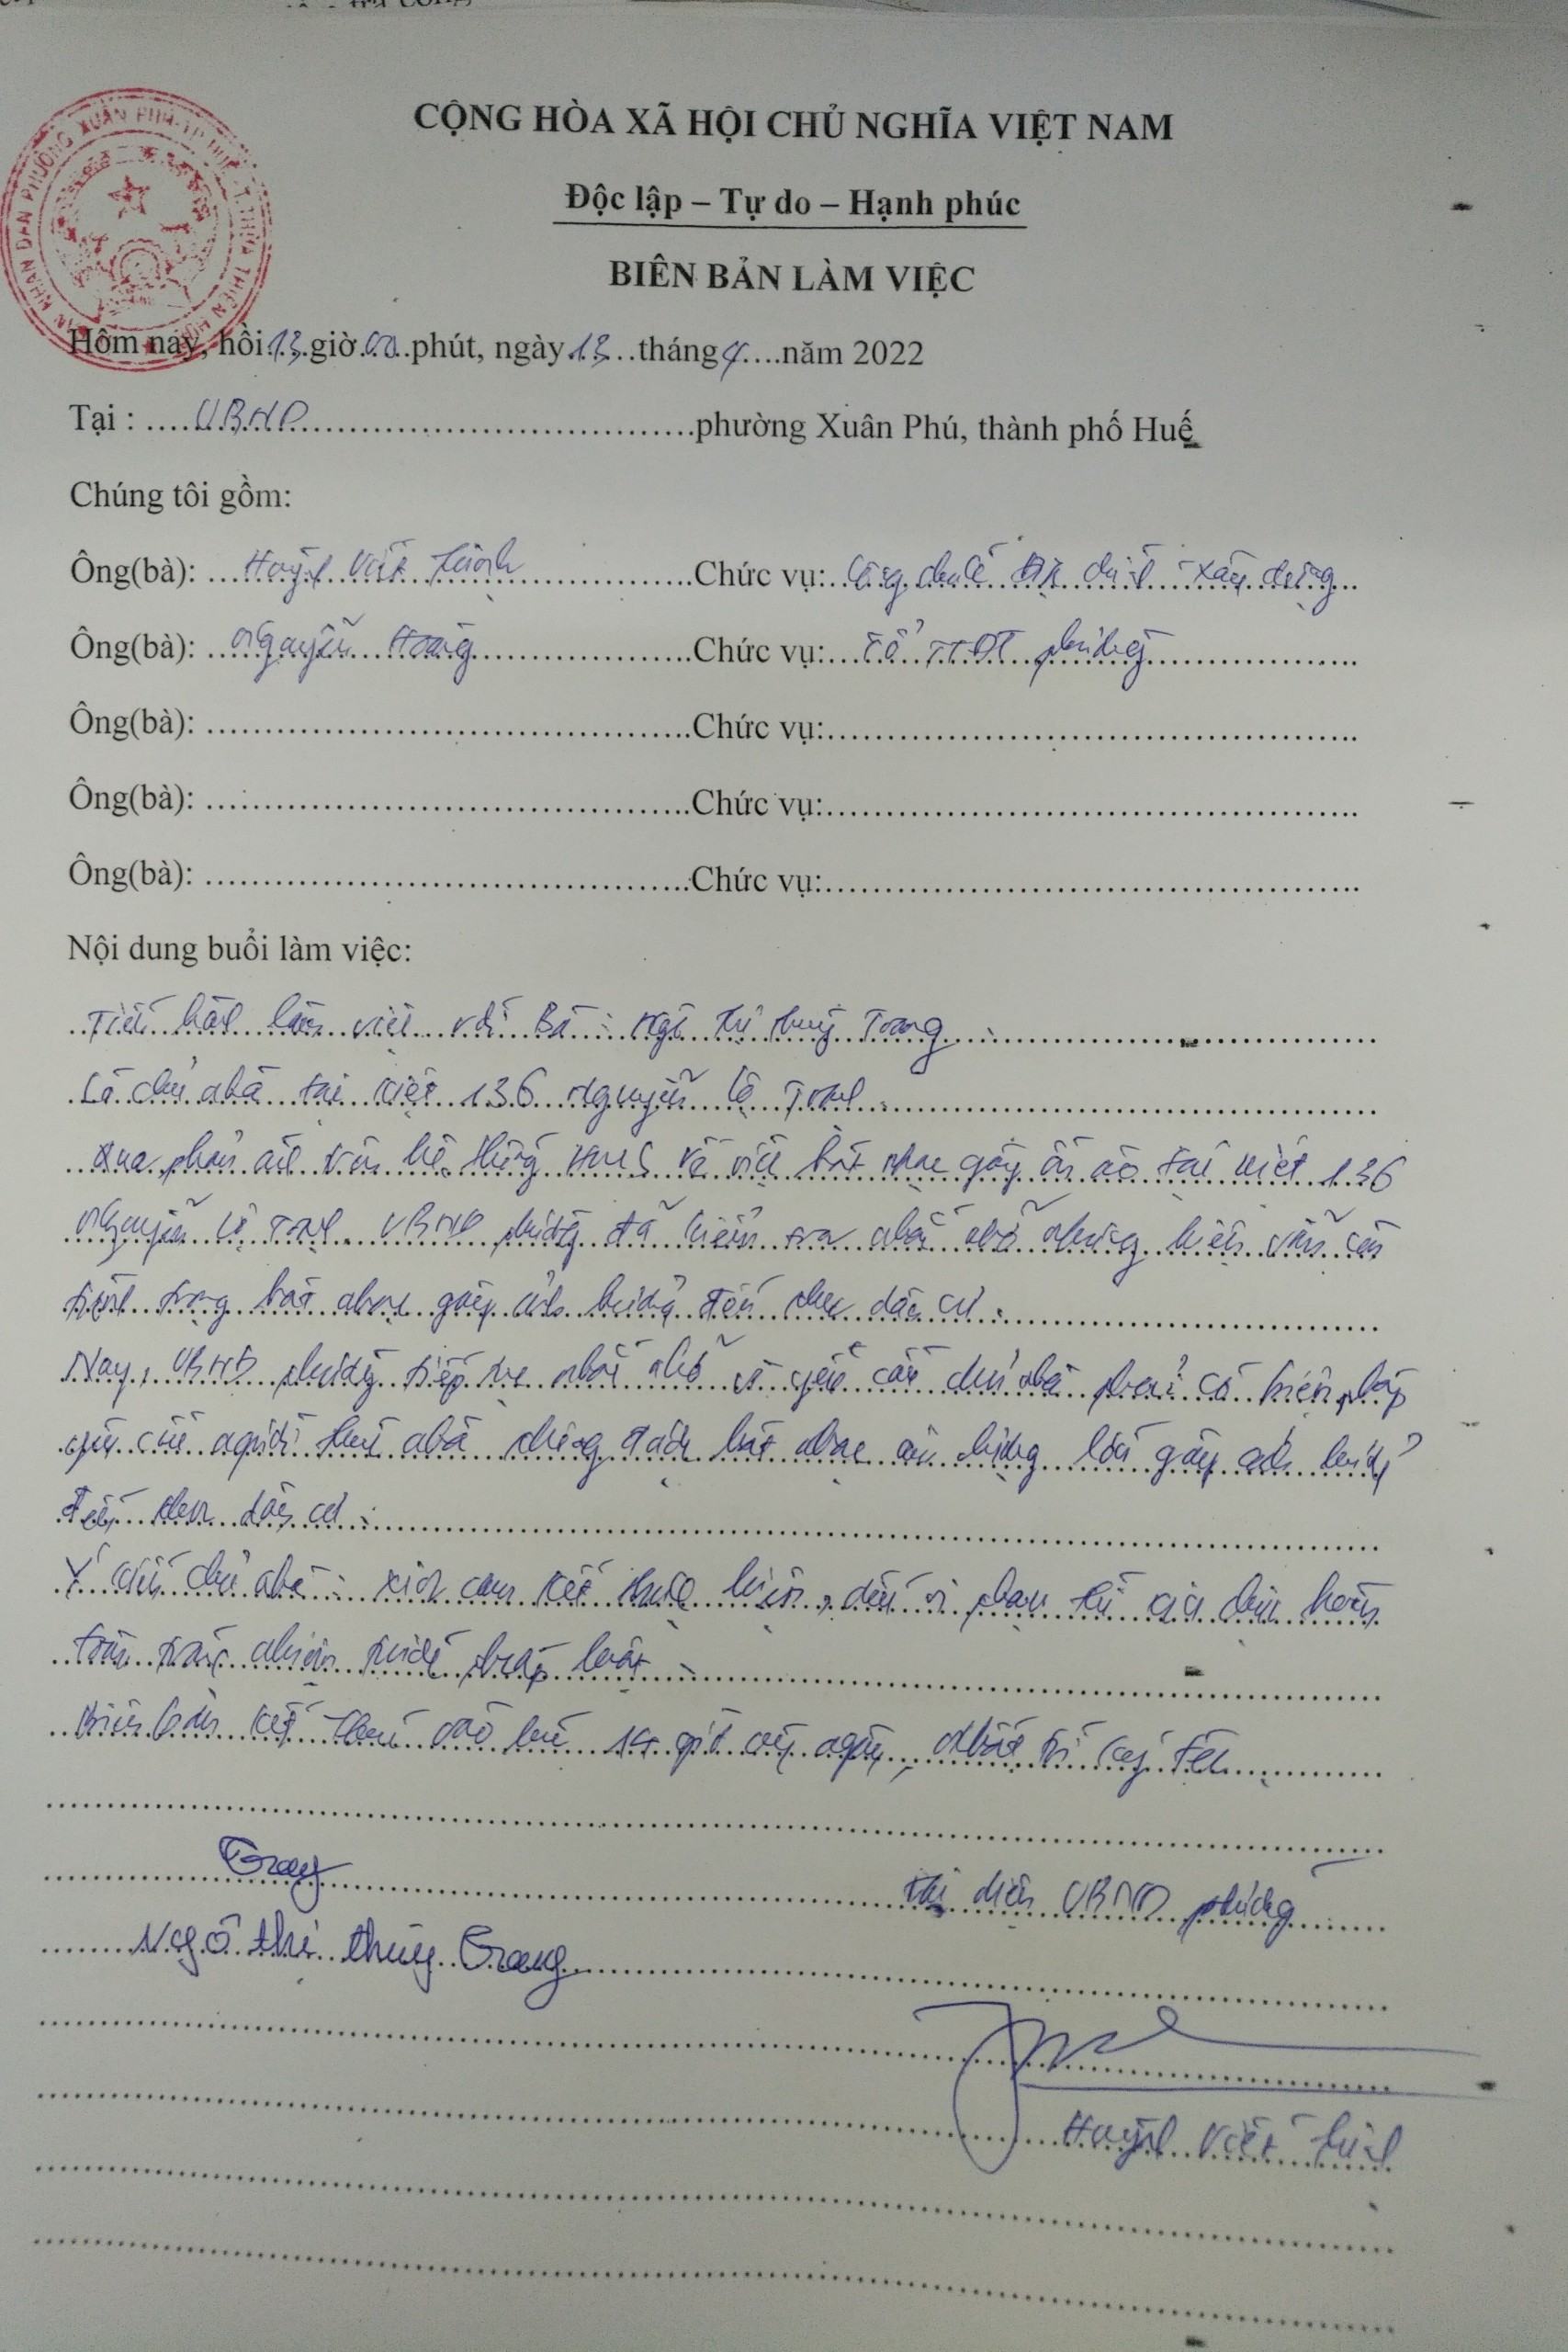 ỦY BAN NHÂN DÂN PHƯỜNG XUÂN PHÚ - TP HUẾ - T. THỪA THIÊN HUẾ
CỘNG HÒA XÃ HỘI CHỦ NGHĨA VIỆT NAM
Độc lập – Tự do – Hạnh phúc
BIÊN BẢN LÀM VIỆC
Hôm nay, hồi 13 giờ 00 phút, ngày 13 tháng 4 năm 2022
Tại : UBND phường Xuân Phú, thành phố Huế
Chúng tôi gồm:
Ông(bà): Huỳnh Viết Chức vụ: Công chức địa chính - xây dựng
Ông(bà): Nguyễn Hoàng Chức vụ: Tổ TTĐT phường
Ông(bà): Chức vụ:
Ông(bà): Chức vụ:
Ông(bà): Chức vụ:
Nội dung buổi làm việc:
Tiến hành làm việc với Bà: Ngô Thị Thuỳ Trang
Là chủ nhà tại kiệt 136 Nguyễn Lộ Trạch.
Qua phản ánh trên hệ thống HueS về việc hát nhạc gây ồn ào tại kiệt 136
Nguyễn Lộ Trạch. UBND phường đã kiểm tra nhắc nhở nhưng hiện vẫn còn
tình trạng hát nhạc gây ảnh hưởng đến khu dân cư.
Nay, UBND phường tiếp tục nhắc nhở và yêu cầu chủ nhà phải có biện pháp
yêu cầu người thuê nhà không được hát nhạc âm lượng lớn gây ảnh hưởng
đến khu dân cư.
Ý kiến chủ nhà: xin cam kết thực hiện, nếu vi phạm thì gia đình hoàn
toàn trách nhiệm trước pháp luật.
Biên bản kết thúc vào lúc 14 giờ cùng ngày, nhất trí ký tên
Trang
Đại diện UBND phường
Ngô thị thùy Trang
Huỳnh Viết